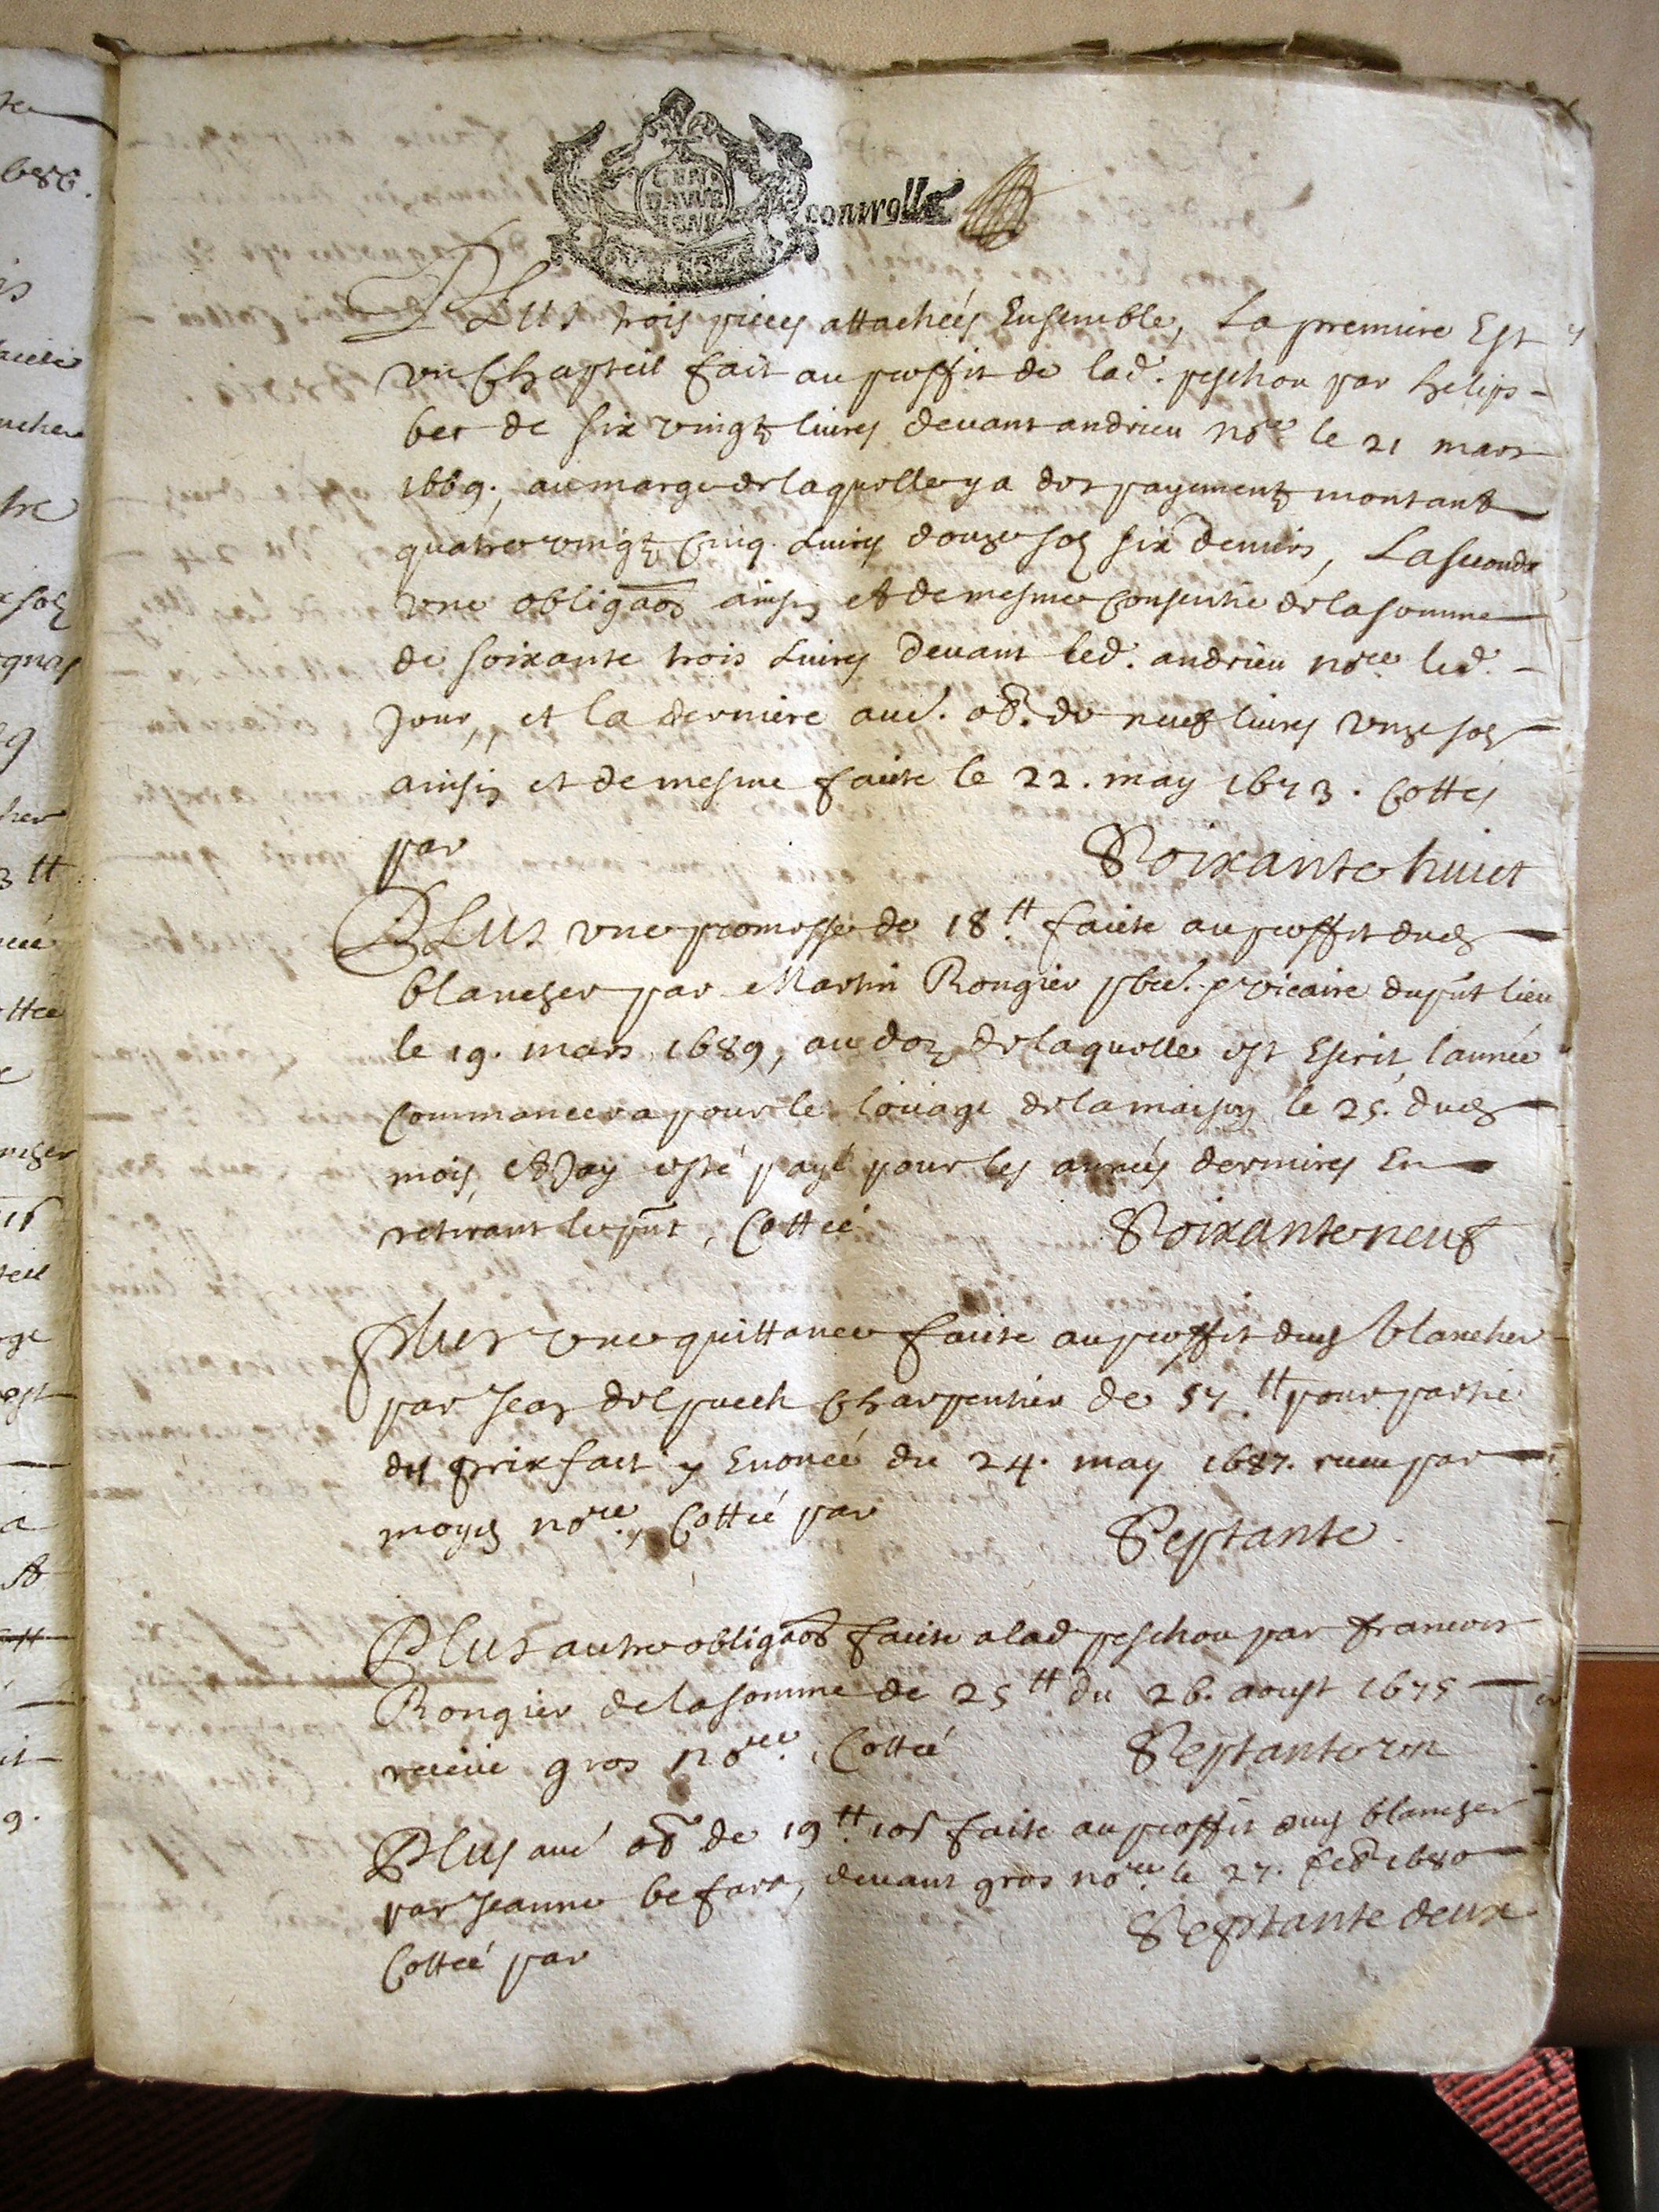 controlle
PLus trois pieces attachées Ensemble, La premiere Est
un Chapteil fait au proffit de lad. peschou par helips-
bet de six vingtz livres devant andrieu nore. le 21 mars
1669., au marge de laquelle y a des payementz montant
quatre vingtz cinq Livres douze solz six deniers, La seconde
une obligaon ainsin et de mesme consentie de la somme
de soixante trois Livres devant led. andrieu nore. led.
Jour, et la derniere aue. ob. de neuf livres unze solz
ainsin et de mesme faite le 22. may 1673. Cottes
par
Soixante huict
PLus une promesse de 18 tt. faite au proffit dud
blancher par Martin Rongier pbre. vicaire du put lieu
le 19. mars 1689, au doz de laquelle est Escrit, lannée
commancera pour le loüage de la maison le 25. dud
mois, et Jay esté payé pour les années dernieres En
retirant le put, Cottée
Soixante neuf
plus une quittance faite au proffit dud blancher
par Jean delpuech charpentier de 57 tt. pour partie
du prix fait y Enoncé du 24. may 1687. receu par
moyd nore., Cottée par
Septante.
Plus autre obligaon faite a lad peschou par francois
Rongier de la somme de 25 tt du 26. aoust 1675
receüe gros nore., Cottée
Septante un
Plus aue ob de 19 tt. 10s faite au proffit dud blancher
par Jeanne befara, devant gros nore. le 27. feb 1680
Septante deux
Cottée par